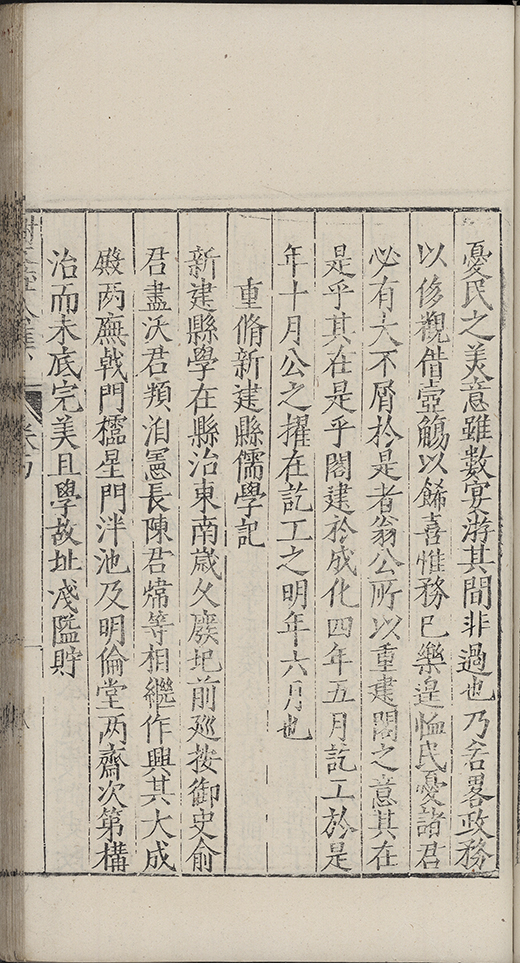 憂民之美意雖數宴游其間非過也乃若畧政務
以侈觀借壺觴以餙喜惟務已樂遑恤民憂諸君
必有大不屑於是者翁公所以重建閣之意其在
是乎其在是乎閣建於成化四年五月訖工於是
年十月公之擢在訖工之明年六月也
重脩新建縣儒學記
新建縣學在縣治東南歲久廢圯前廵按御史俞
君藎沃君頖洎憲長陳君煒等相繼作興其大成
殿两廡戟門櫺星門泮池及明倫堂两齋次第構
治而未底完美且學故址淺隘貯